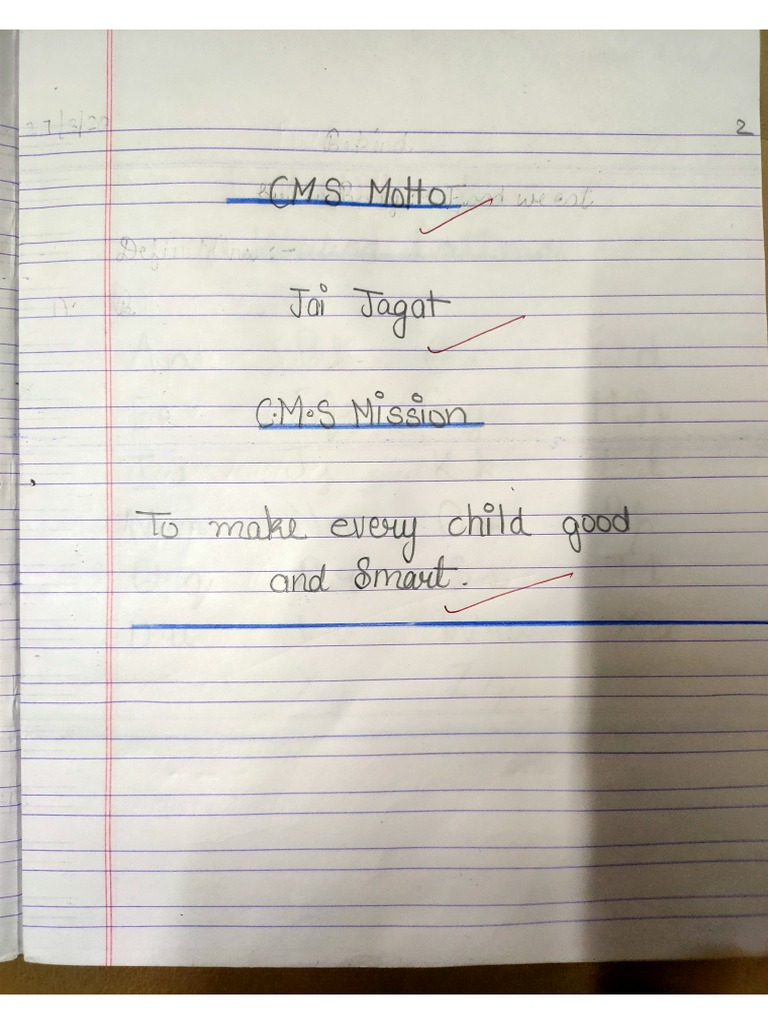 2
CMS Motto
Jai Jagat
C.M.S Mission
To make every child good
and Smart.